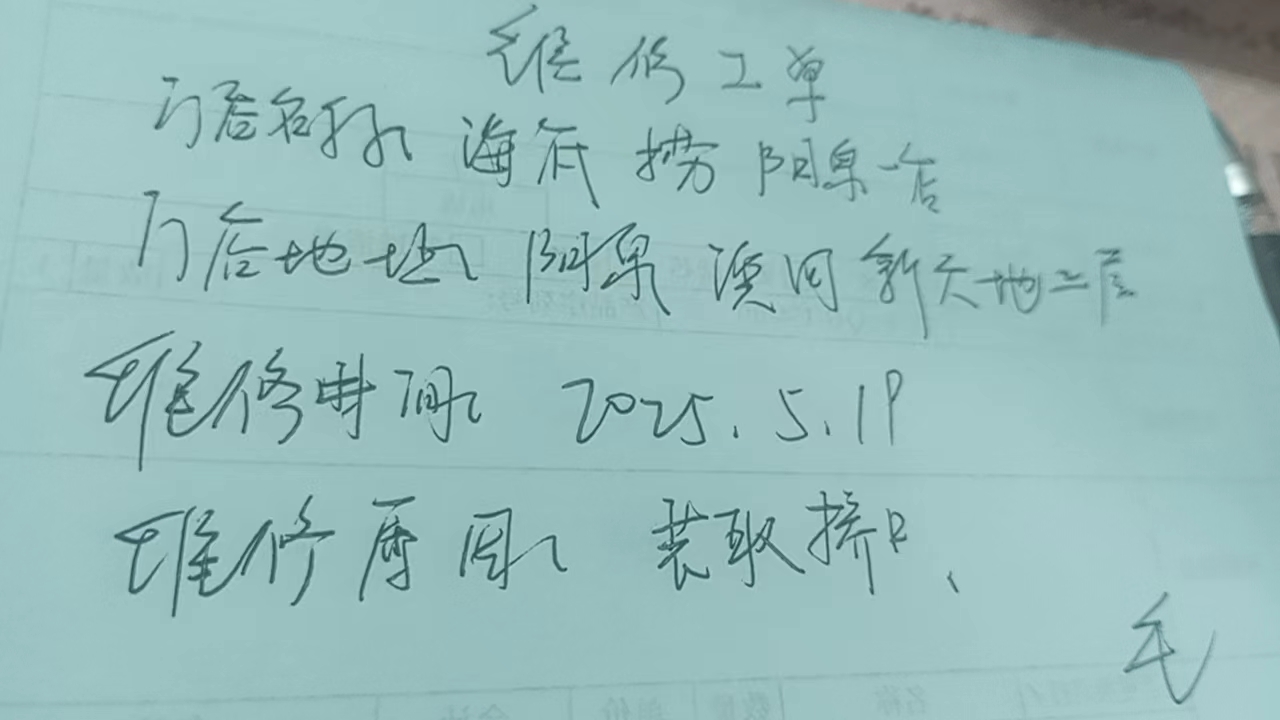 维修工单
门店名称: 海底捞 阳泉一店
门店地址: 阳泉 滨河新天地二层
维修时间: 2025.5.19
维修原因: 装取挤口、
毛